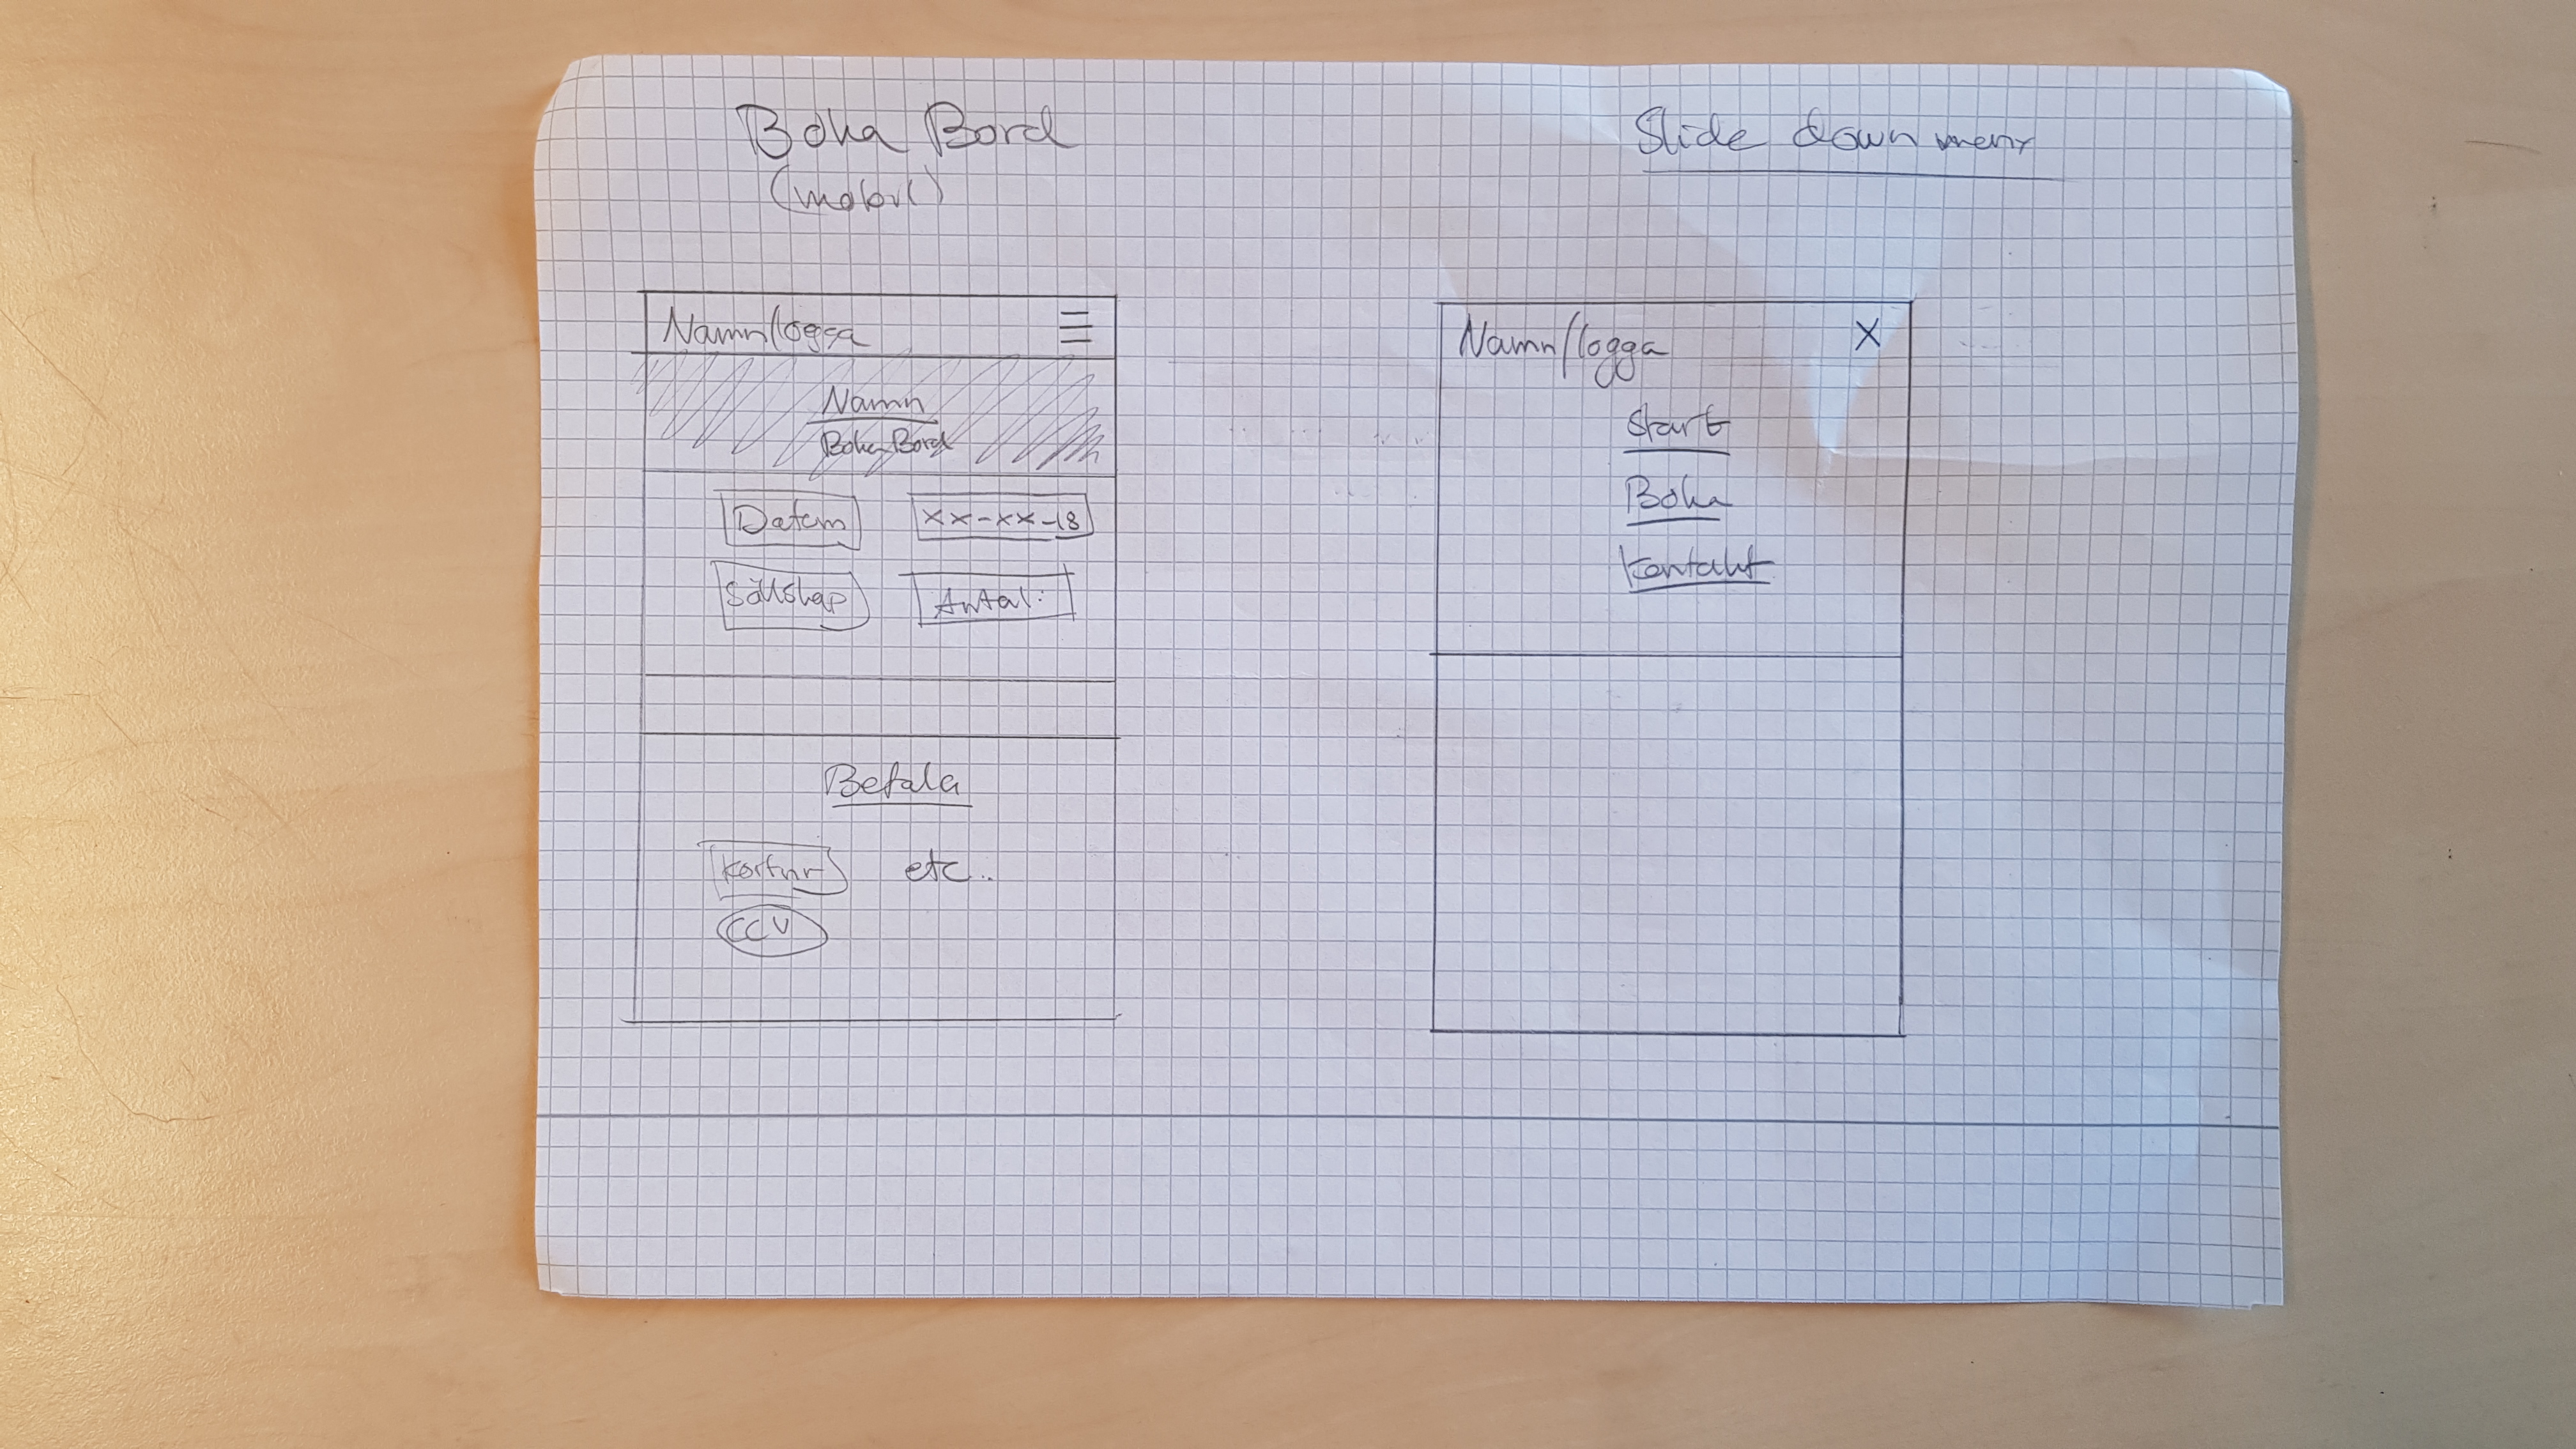 Boka Bord
(mobil)
Namn/logga
Namn
Boka Bord
Datum
xx-xx-18
Sällskap
Antal:
Betala
Kortnr
etc..
CCV
Slide down meny
Namn/logga
X
Start
Boka
Kontakt